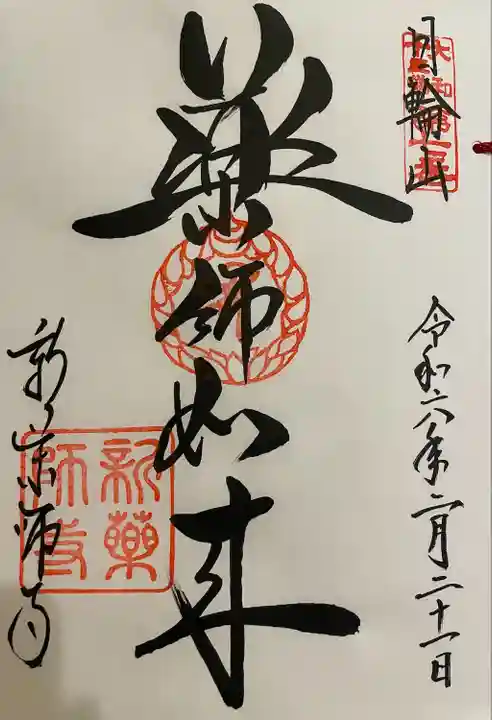 日輪山
令和六年二月二十一日
薬師如来
新薬師寺
新薬
師寺